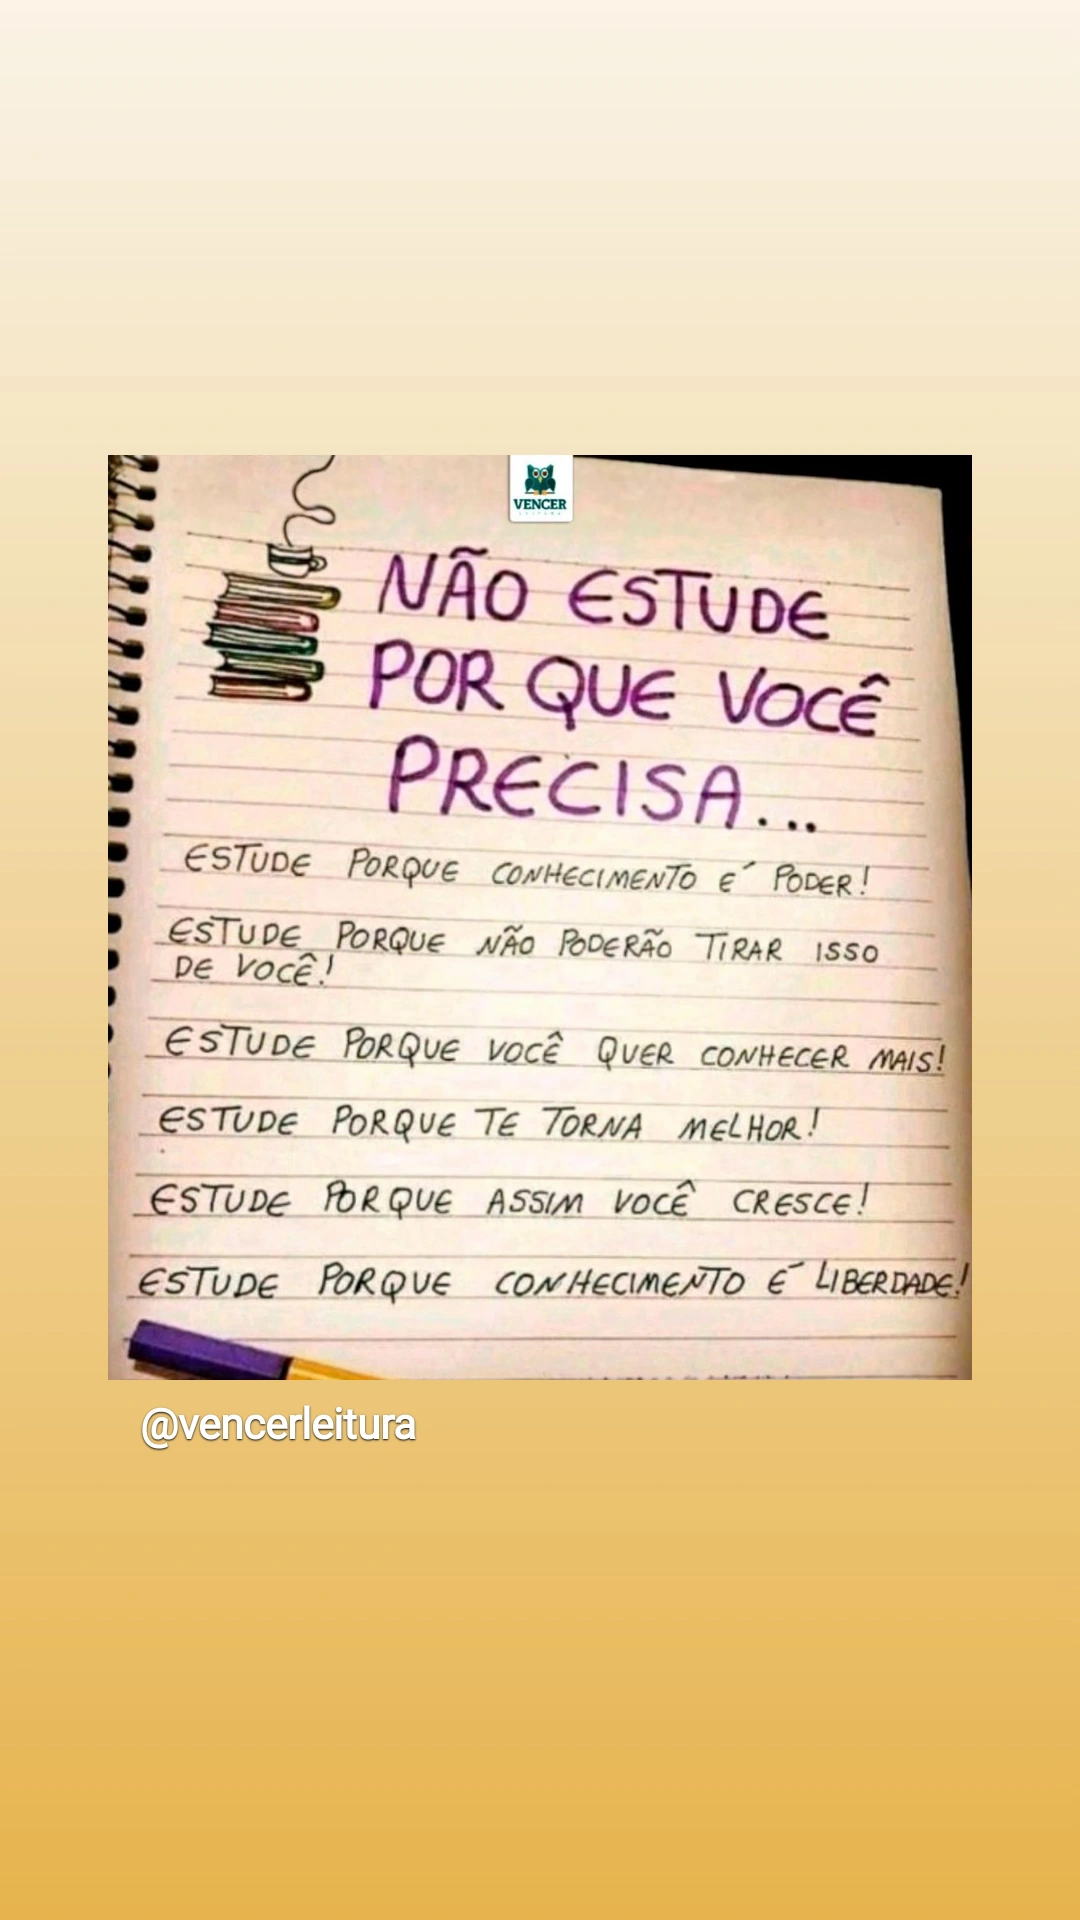 VENCER
NÃO ESTUDE
POR QUE VOCÊ
PRECISA...
ESTUDE PORQUE CONHECIMENTO É PODER!
ESTUDE PORQUE NÃO PODERÃO TIRAR ISSO
DE VOCÊ!
ESTUDE PORQUE VOCÊ QUER CONHECER MAIS!
ESTUDE PORQUE TE TORNA MELHOR!
ESTUDE PORQUE ASSIM VOCÊ CRESCE!
ESTUDE PORQUE CONHECIMENTO É LIBERDADE!
@vencerleitura